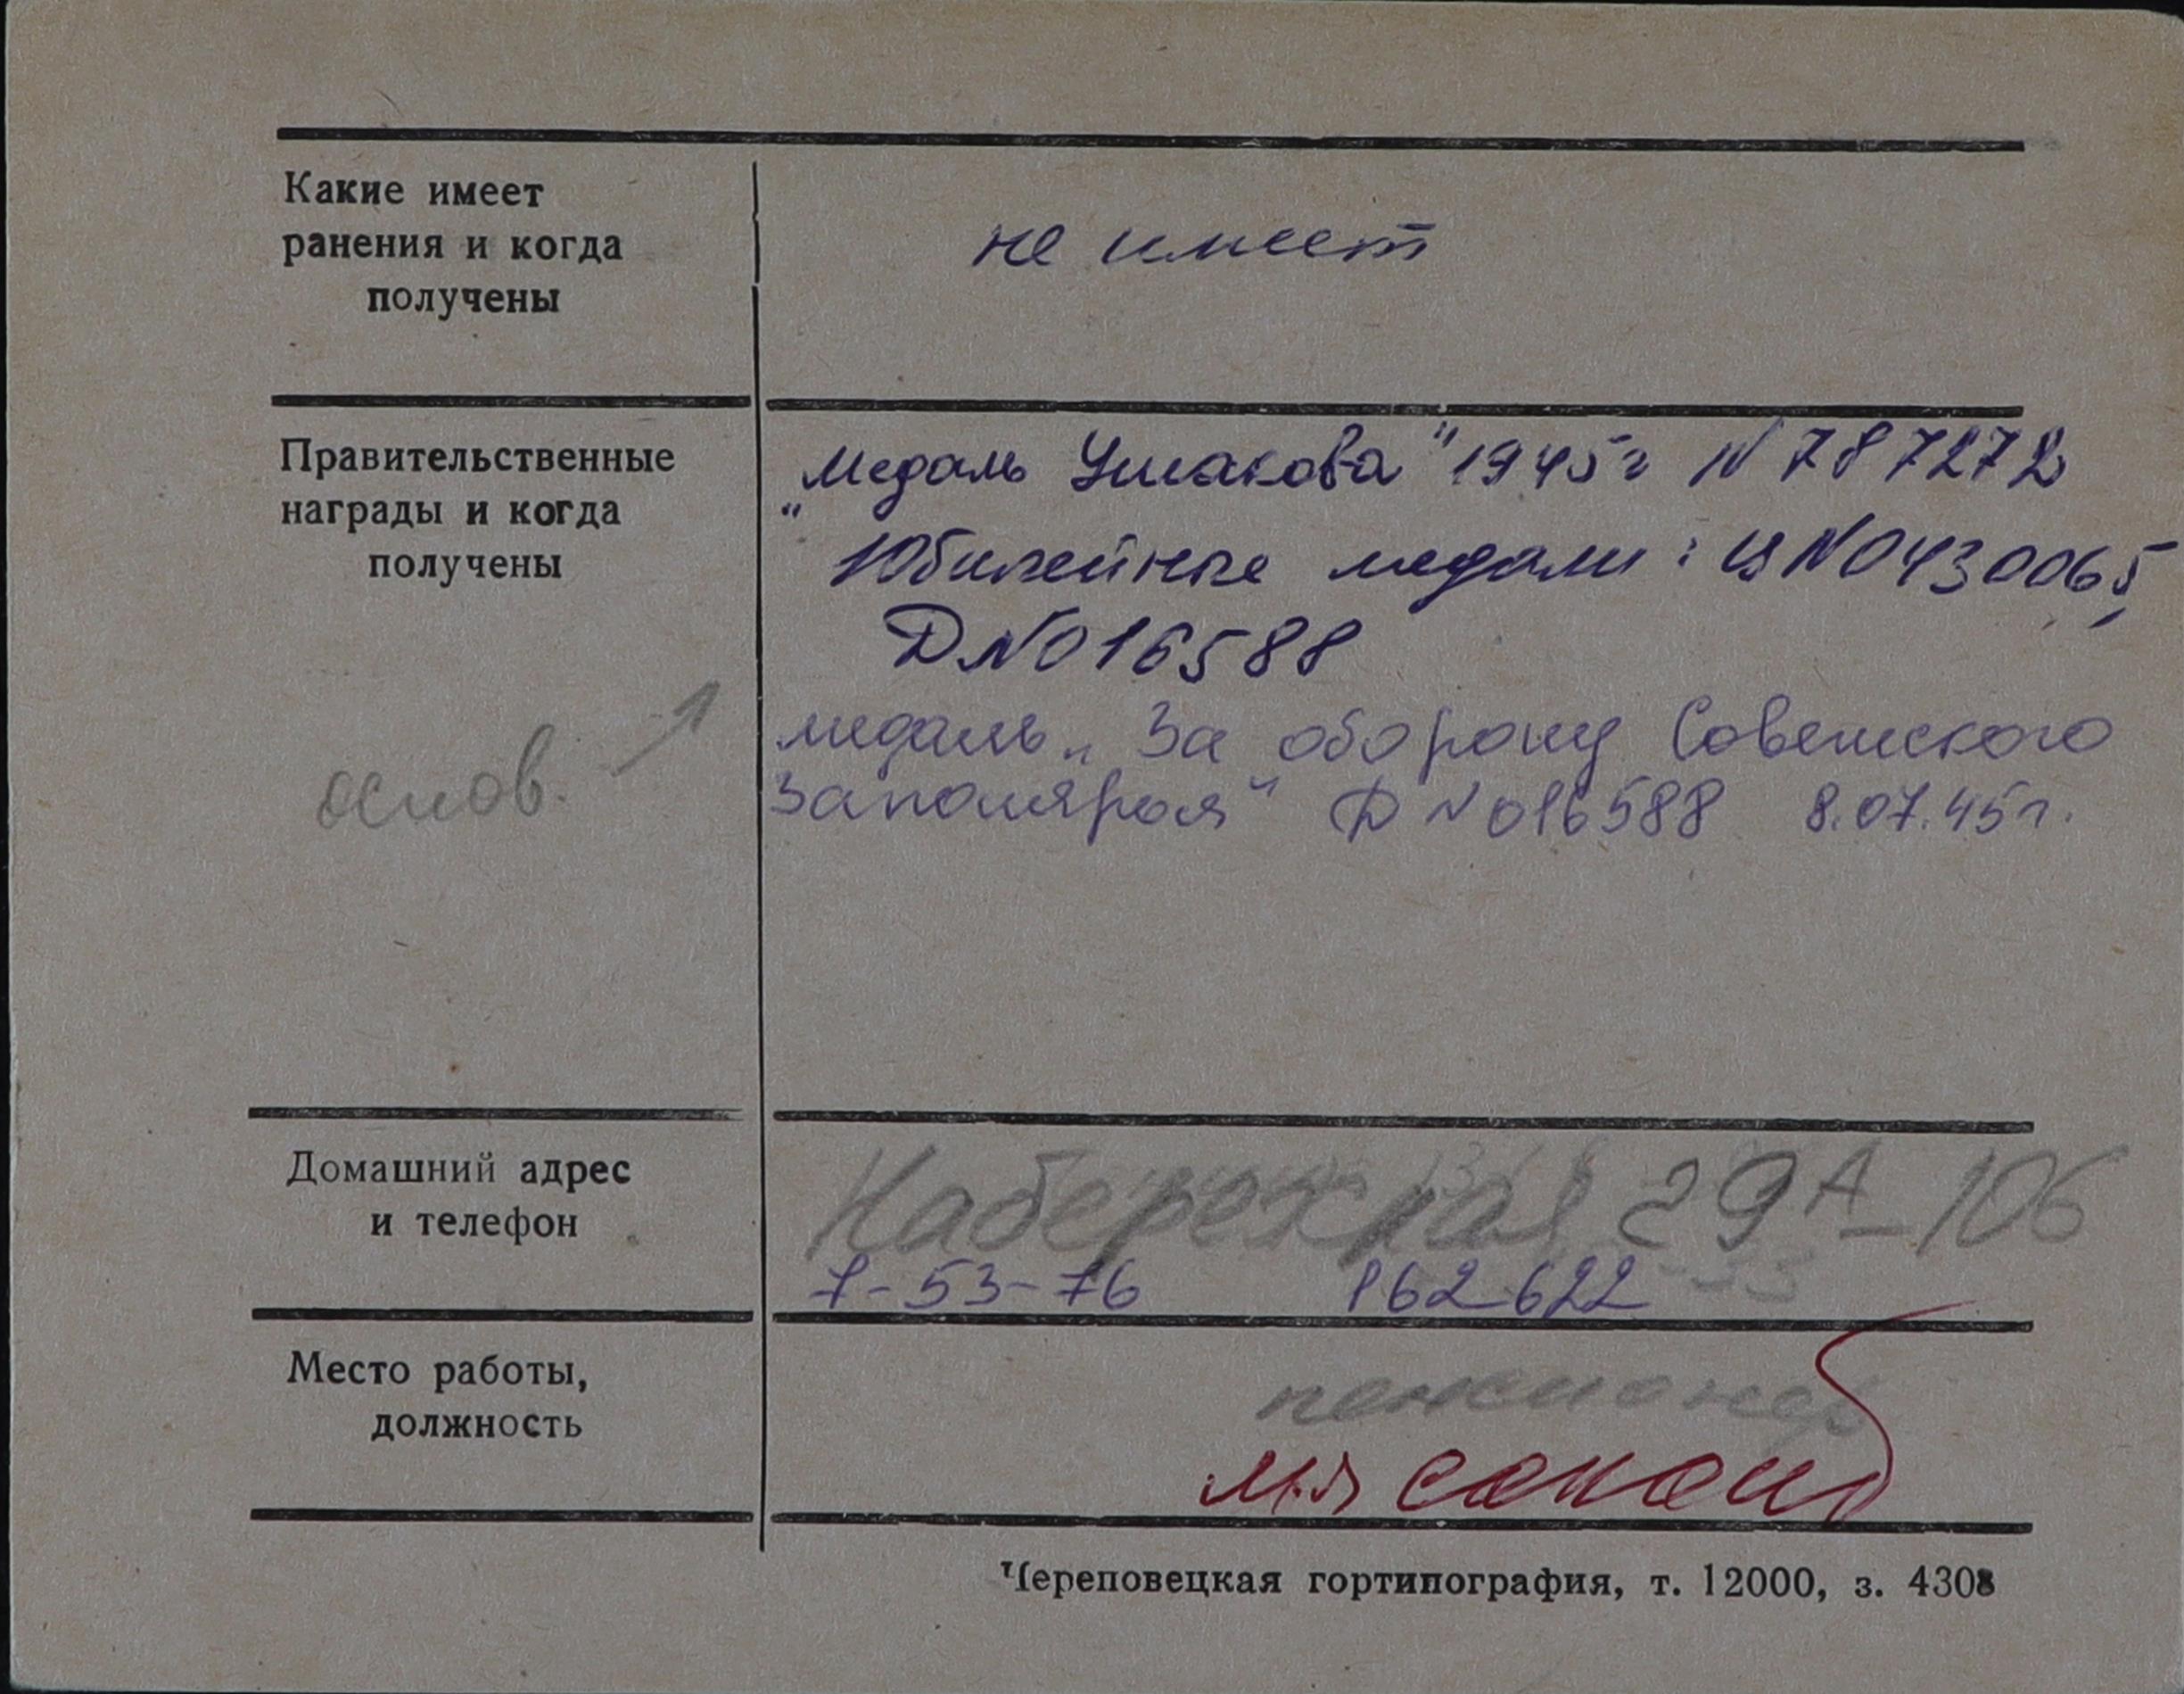 Какие имеет
ранения и когда
получены
не имеет
Правительственные
награды и когда
получены
„Медаль Ушакова" 1945г N 787272
Юбилейные медали: ЦN0430065,
DN016588
медаль „За оборону Советского
Заполярья" Ф N016588 8.07.45г.
основ.
Домашний адрес
и телефон
Набережная 29А-106
7-53-76 162622
Место работы,
должность
пенсионер
Череповецкая гортипография, т. 12000, з. 4308